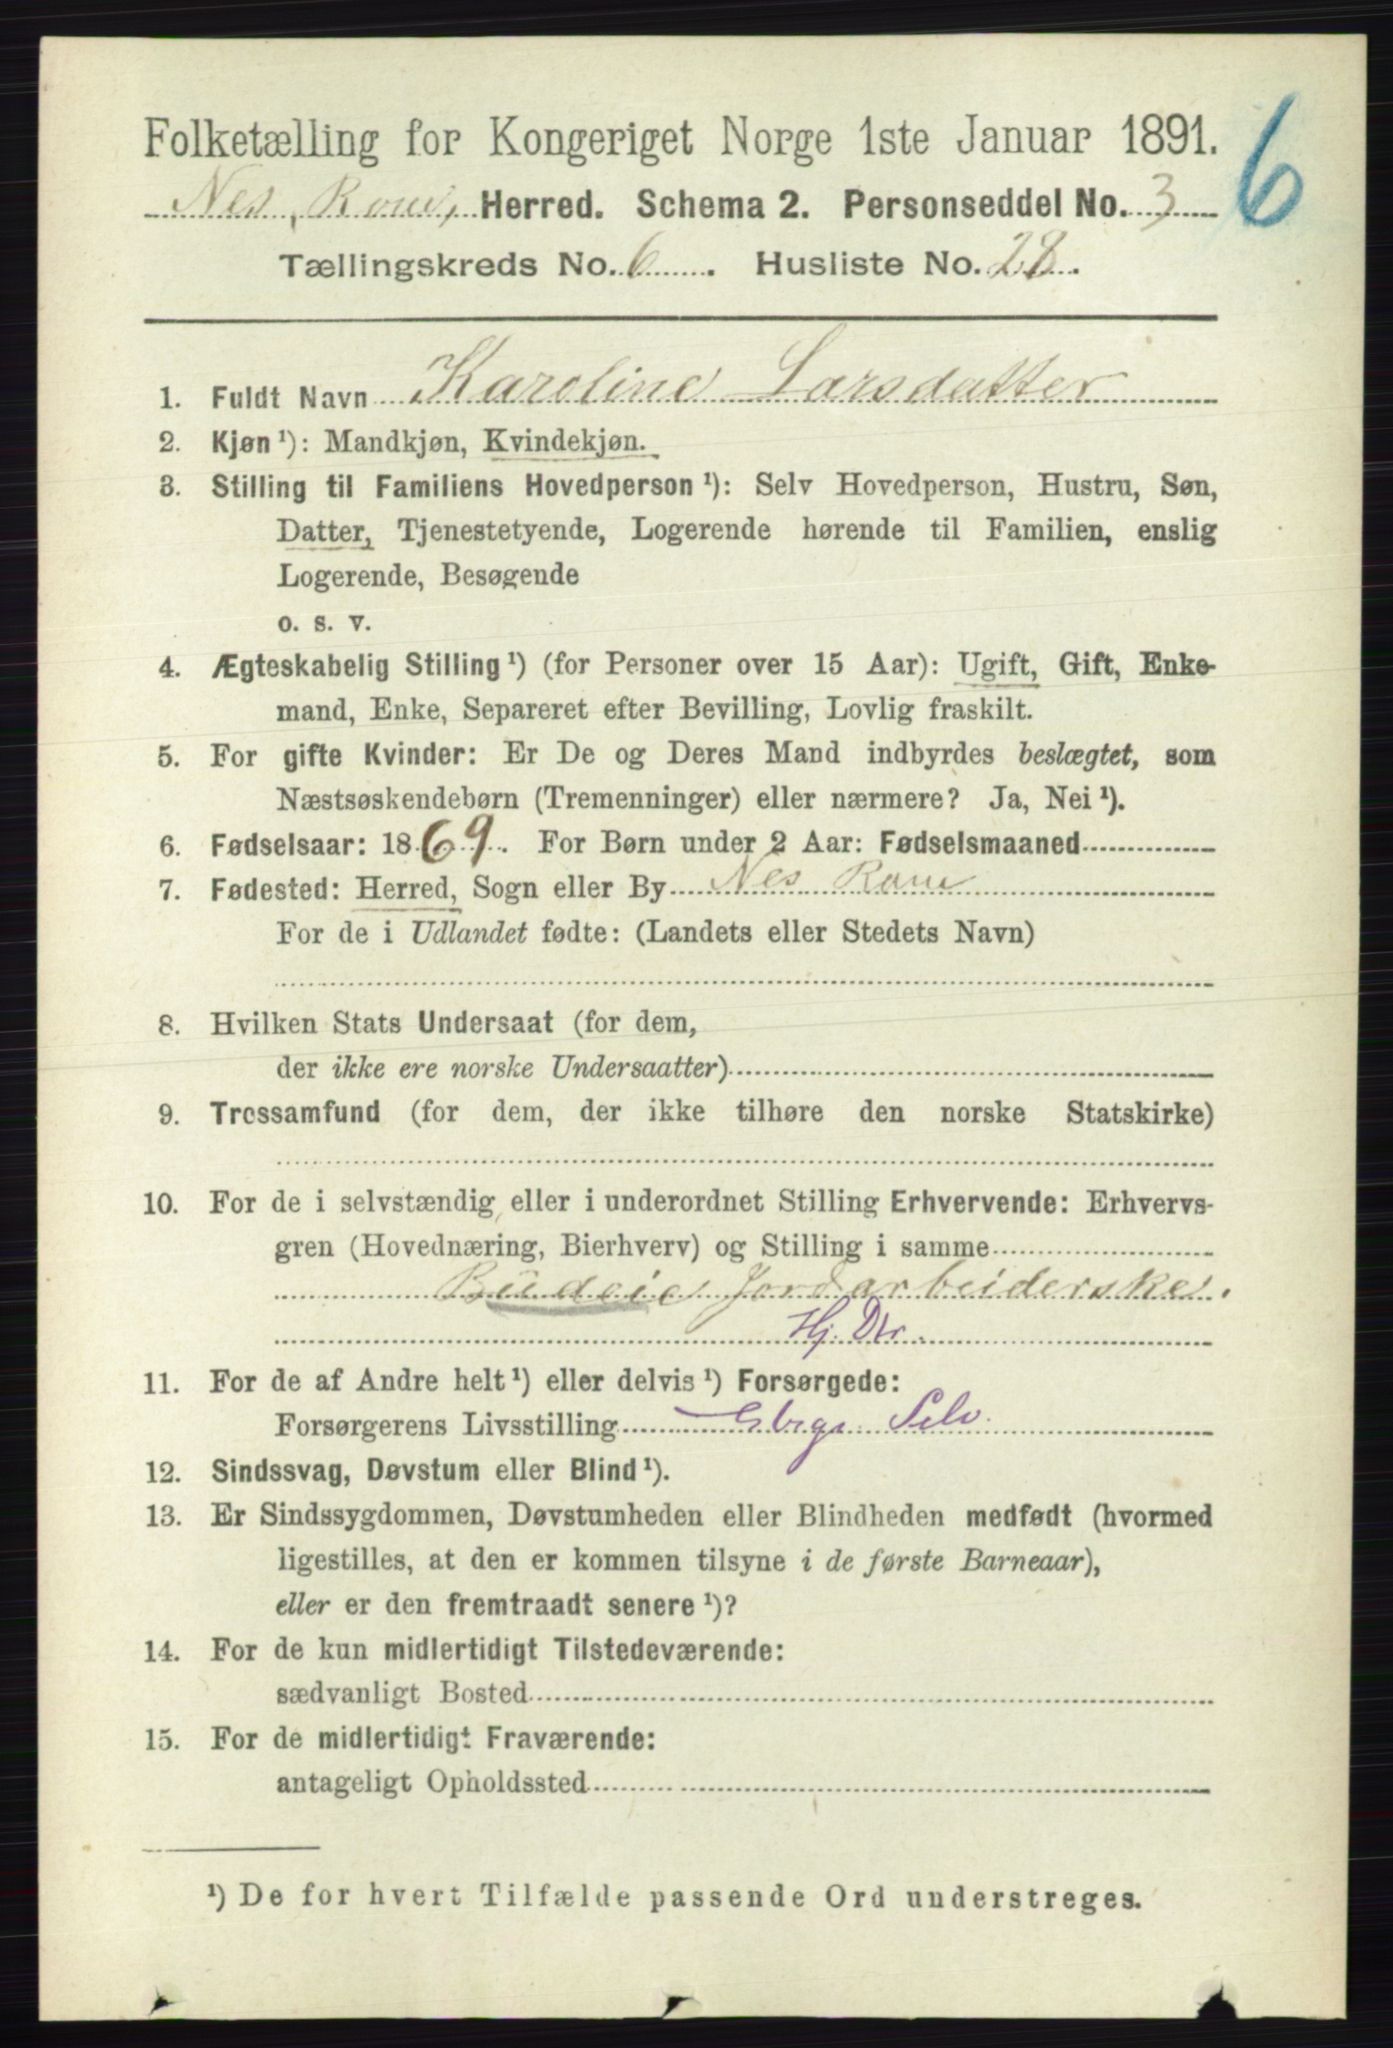 Folketælling for Kongeriget Norge 1ste Januar 1891.
6
Nes, Rom, Herred. Schema 2. Personseddel No. 3
Tællingskreds No. 6. Husliste No. 28.
1. Fuldt Navn Karoline Larsdatter
2. Kjøn ¹): Mandkjøn, Kvindekjøn.
3. Stilling til Familiens Hovedperson ¹): Selv Hovedperson, Hustru, Søn,
Datter, Tjenestetyende, Logerende hørende til Familien, enslig
Logerende, Besøgende
o. s. v.
4. Ægteskabelig Stilling ¹) (for Personer over 15 Aar): Ugift, Gift, Enke-
mand, Enke, Separeret efter Bevilling, Lovlig fraskilt.
5. For gifte Kvinder: Er De og Deres Mand indbyrdes beslægtet, som
Næstsøskendebørn (Tremenninger) eller nærmere? Ja, Nei ¹).
6. Fødselsaar: 1869. For Børn under 2 Aar: Fødselsmaaned
7. Fødested: Herred, Sogn eller By Nes Rom
For de i Udlandet fødte: (Landets eller Stedets Navn)
8. Hvilken Stats Undersaat (for dem,
der ikke ere norske Undersaatter)
9. Trossamfund (for dem, der ikke tilhøre den norske Statskirke)
10. For de i selvstændig eller i underordnet Stilling Erhvervende: Erhvervs-
gren (Hovednæring, Bierhverv) og Stilling i samme
Budeie Jordarbeiderske.
Hj. Dtr.
11. For de af Andre helt ¹) eller delvis ¹) Forsørgede:
Forsørgerens Livsstilling Selv.
12. Sindssvag, Døvstum eller Blind ¹).
13. Er Sindssygdommen, Døvstumheden eller Blindheden medfødt (hvormed
ligestilles, at den er kommen tilsyne i de første Barneaar),
eller er den fremtraadt senere ¹)?
14. For de kun midlertidigt Tilstedeværende:
sædvanligt Bosted
15. For de midlertidigt Fraværende:
antageligt Opholdssted
¹) De for hvert Tilfælde passende Ord understreges.